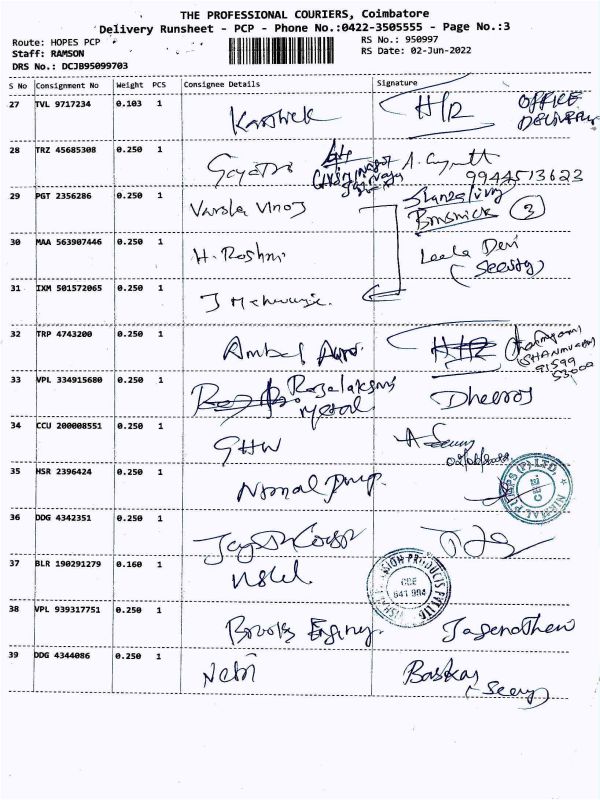 THE PROFESSIONAL COURIERS, Coimbatore
Delivery Runsheet - PCP - Phone No.:0422-3505555 - Page No.:3
Route: HOPES PCP
RS No.: 950997
Staff: RAMSON
RS Date: 02-Jun-2022
DRS No.: DCJB95099703
S No Consignment No Weight PCS Consignee Details Signature
27 TVL 9717234 0.103 1 Karthick H/R OFFICE
DELIVERY
28 TRZ 45685308 0.250 1 Gayatri
9944513623
29 PGT 2356286 0.250 1 Varsha Vinoj
3
30 MAA 563907446 0.250 1 H. Roshni Leela Devi
(Seerty)
31 IXM 501572065 0.250 1
32 TRP 4743200 0.250 1 Ambal Auto. H/R
SHANMUGAM
91599
53000
33 VPL 334915680 0.250 1 Rajalakshmi Dheeroj
metal
34 CCU 200008551 0.250 1 GHW
02/06/2022
35 HSR 2396424 0.250 1 Nirmal Pump.
NIRMAL PUMPS (P) LTD.
CBE.
36 DDG 4342351 0.250 1
37 BLR 190291279 0.160 1
PRODUCTS PVT LTD
CBE
641 004
38 VPL 939317751 0.250 1 Brooks Enginry. Jagenathan
39 DDG 4344086 0.250 1 Baskar